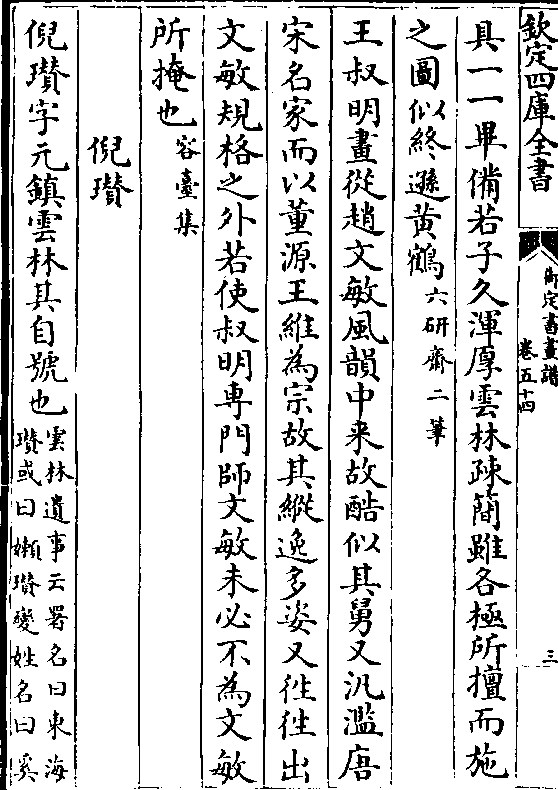 欽定四庫全書
御定書畫譜
卷五十四
三
具一一畢備若子久渾厚雲林疎簡雖各極所擅而施
之圖似終遜黄鶴六研齋二筆
王叔明畫從趙文敏風韻中来故酷似其舅又汎濫唐
宋名家而以董源王維為宗故其縱逸多姿又徃徃出
文敏規格之外若使叔明専門師文敏未必不為文敏
所掩也容臺集
倪瓚
倪瓚字元鎮雲林其自號也雲林遺事云署名曰東海
瓚或曰嬾瓚變姓名曰奚